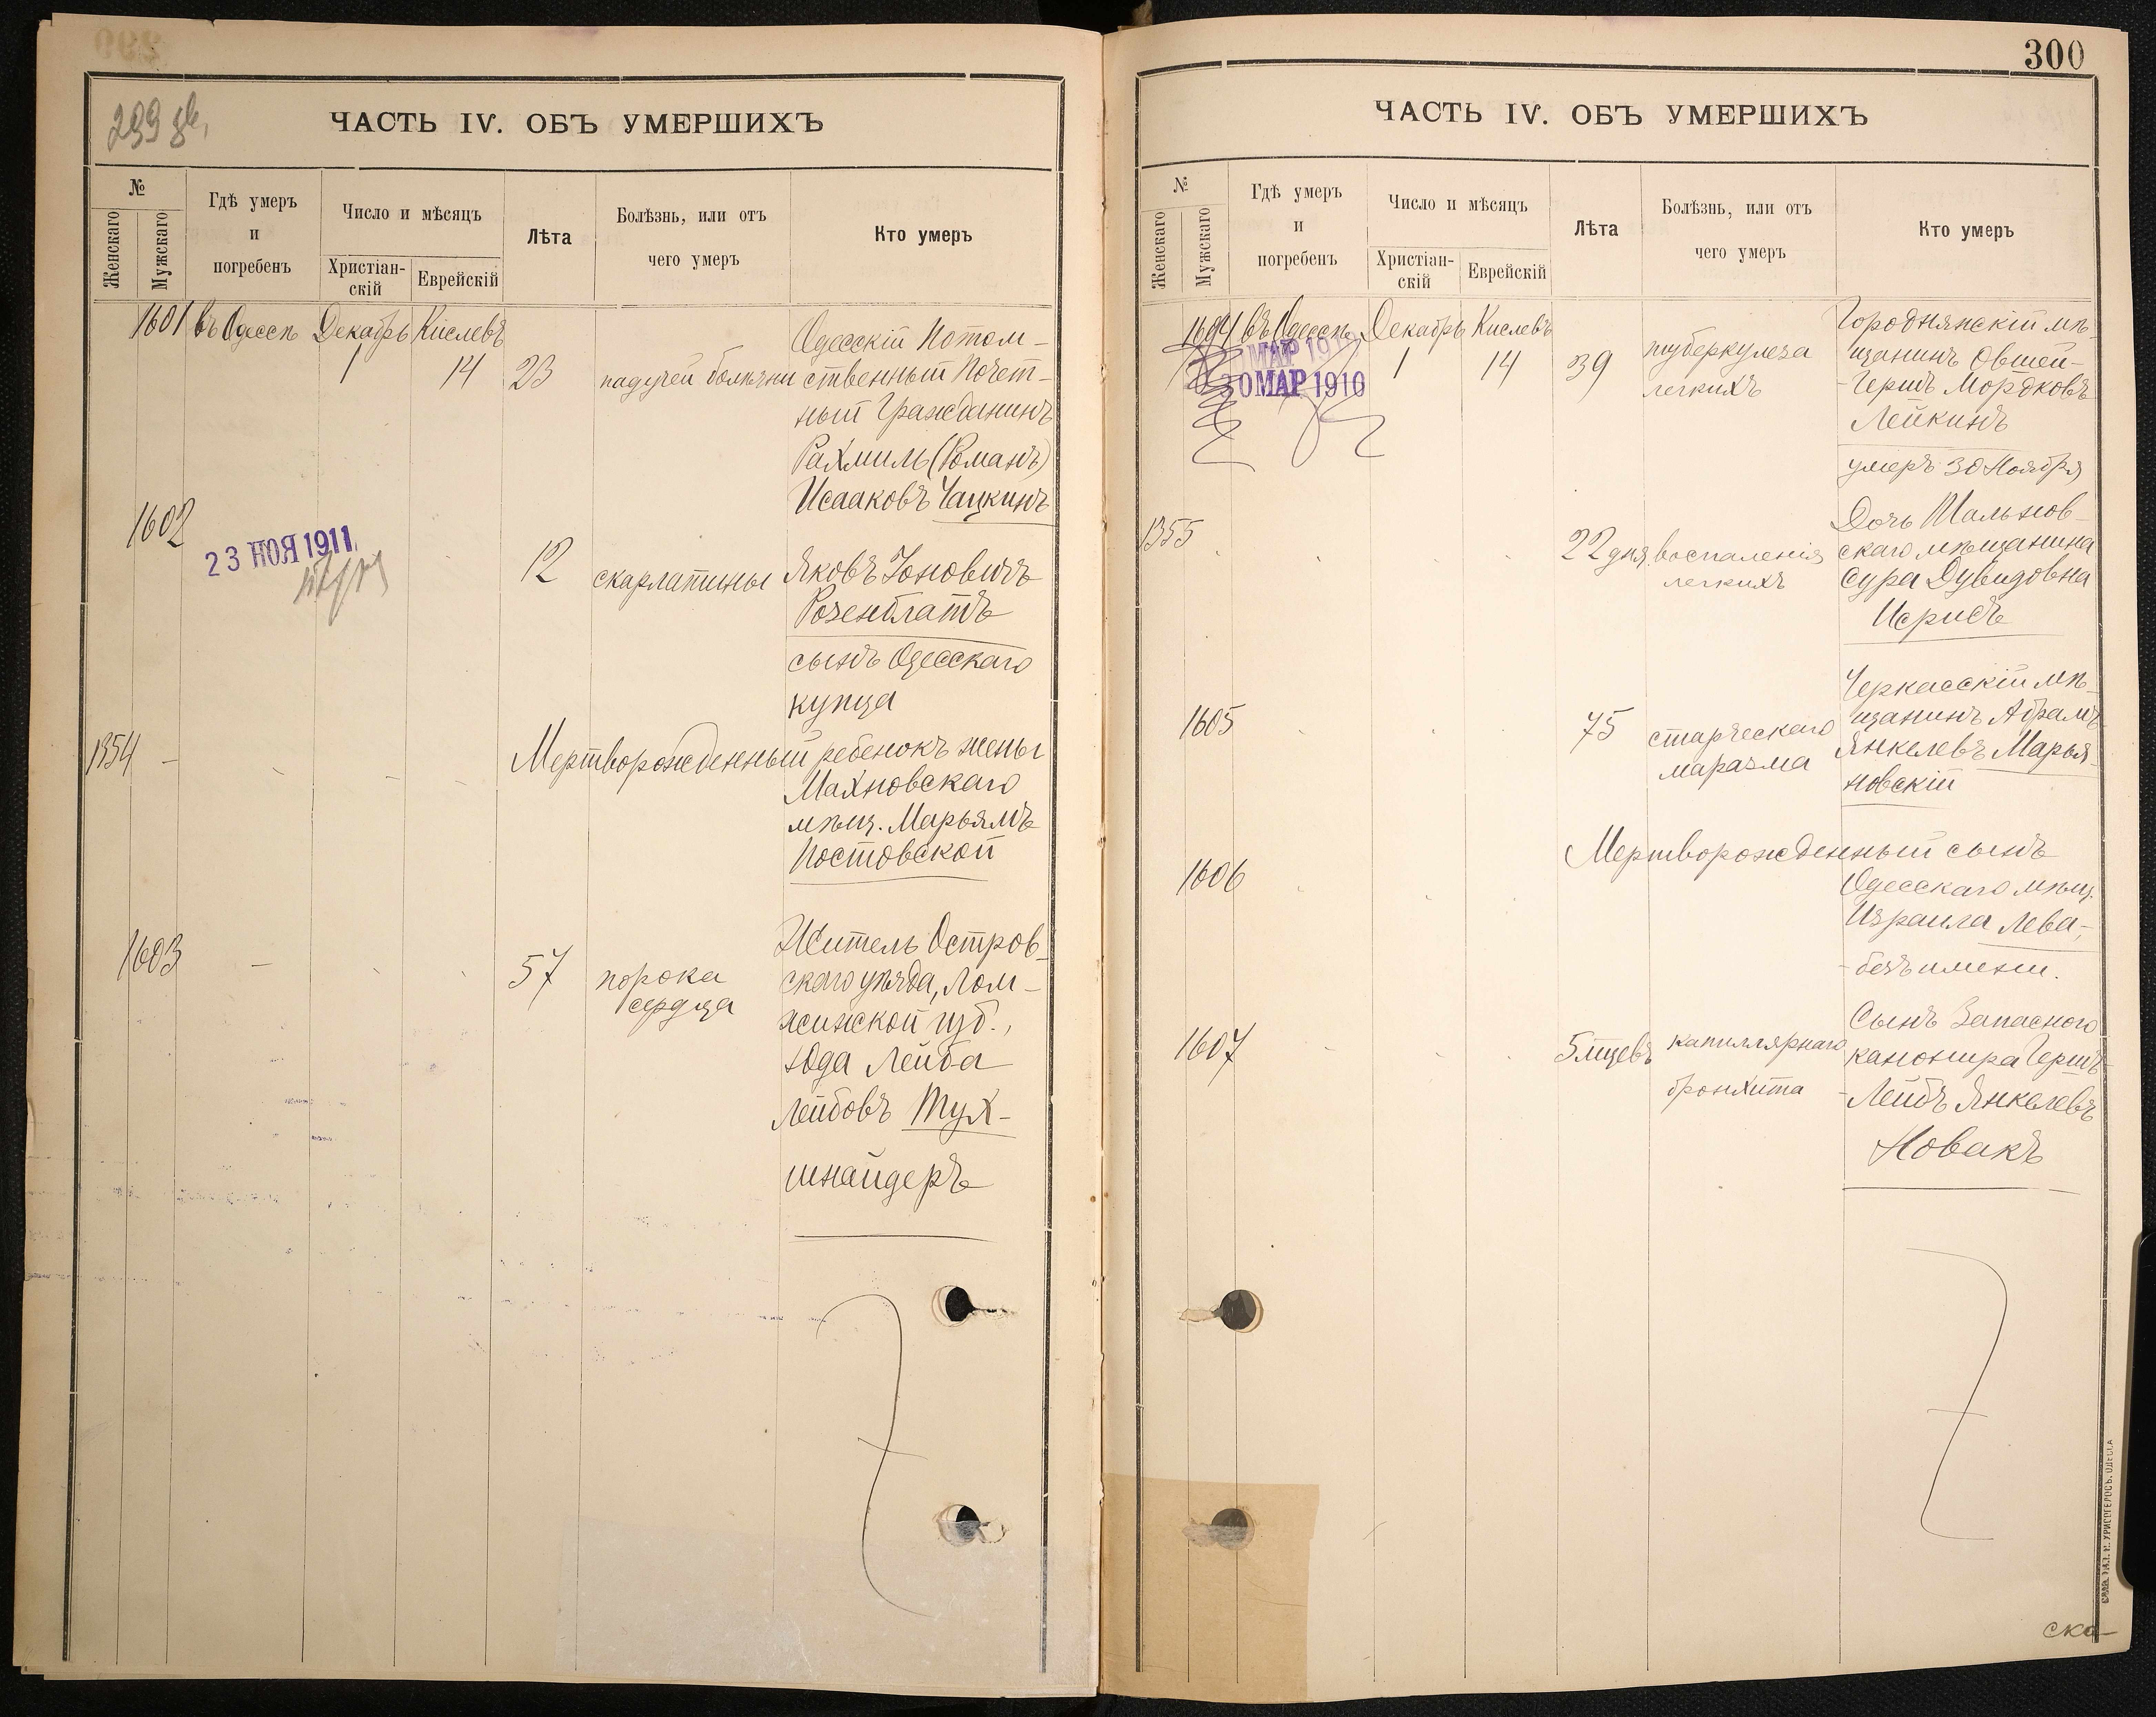 299 об.
ЧАСТЬ IV. ОБЪ УМЕРШИХЪ
№
Женскаго
Мужскаго
Гдѣ умеръ
и
погребенъ
Число и мѣсяцъ
Христіан-
скій
Еврейскій
Лѣта
Болѣзнь, или отъ
чего умеръ
Кто умеръ
1601 въ Одессѣ Декабрь Кислевъ
1 14 23 падучей болѣзни
Одесскій Потом-
ственный Почет-
ный Гражданинъ
Рахмиль (Романъ)
Исааковъ Чацкинъ
1602
23 НОЯ 1911
12 скарлатины
Яковъ Іоновичъ
Розенблатъ
сынъ Одесскаго
купца
1354
Мертворожденный ребенокъ жены
Махновскаго
мѣщ. Марьямъ
Постовской
1603
57 порока
сердца
Житель Остров-
скаго уѣзда, Лом-
жинской губ.,
Юда Лейба
Лейбовъ Тух-
шнайдеръ
300
ЧАСТЬ IV. ОБЪ УМЕРШИХЪ
№
Женскаго
Мужскаго
Гдѣ умеръ
и
погребенъ
Число и мѣсяцъ
Христіан-
скій
Еврейскій
Лѣта
Болѣзнь, или отъ
чего умеръ
Кто умеръ
1604 въ Одессѣ Декабрь Кислевъ
МАР 191
30 МАР 1910
1 14 39 туберкулеза
легкихъ
Городнянскій мѣ-
щанинъ Овшей-
-Гершъ Мордковъ
Лейкинъ
умеръ 30 Ноября
1355
22 дня воспаленія
легкихъ
Дочь Шальнов-
скаго мѣщанина
Сура Дувидовна
Исрисъ
1605
75 старческаго
маразма
Черкасскій мѣ-
щанинъ Абрамъ
Янкелевъ Марья-
новскій
1606
Мертворожденный сынъ
Одесскаго мѣщ.
Израиля Лева-
-безъ имени.
1607
5 мцевъ капиллярнаго
бронхита
Сынъ Запасного
канонира Гершъ-
-Лейбъ Янкелевъ
Новакъ
ска-